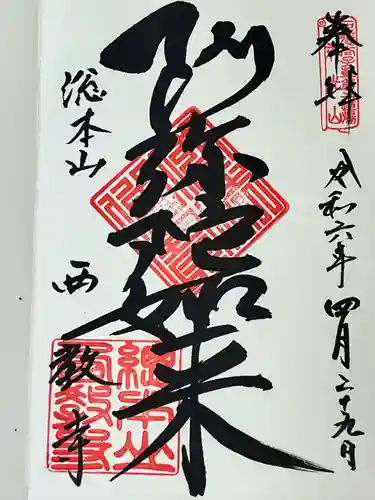 奉拝
令和六年四月二十九日
阿弥陀如来
総本山
西教寺
總本山
西教寺